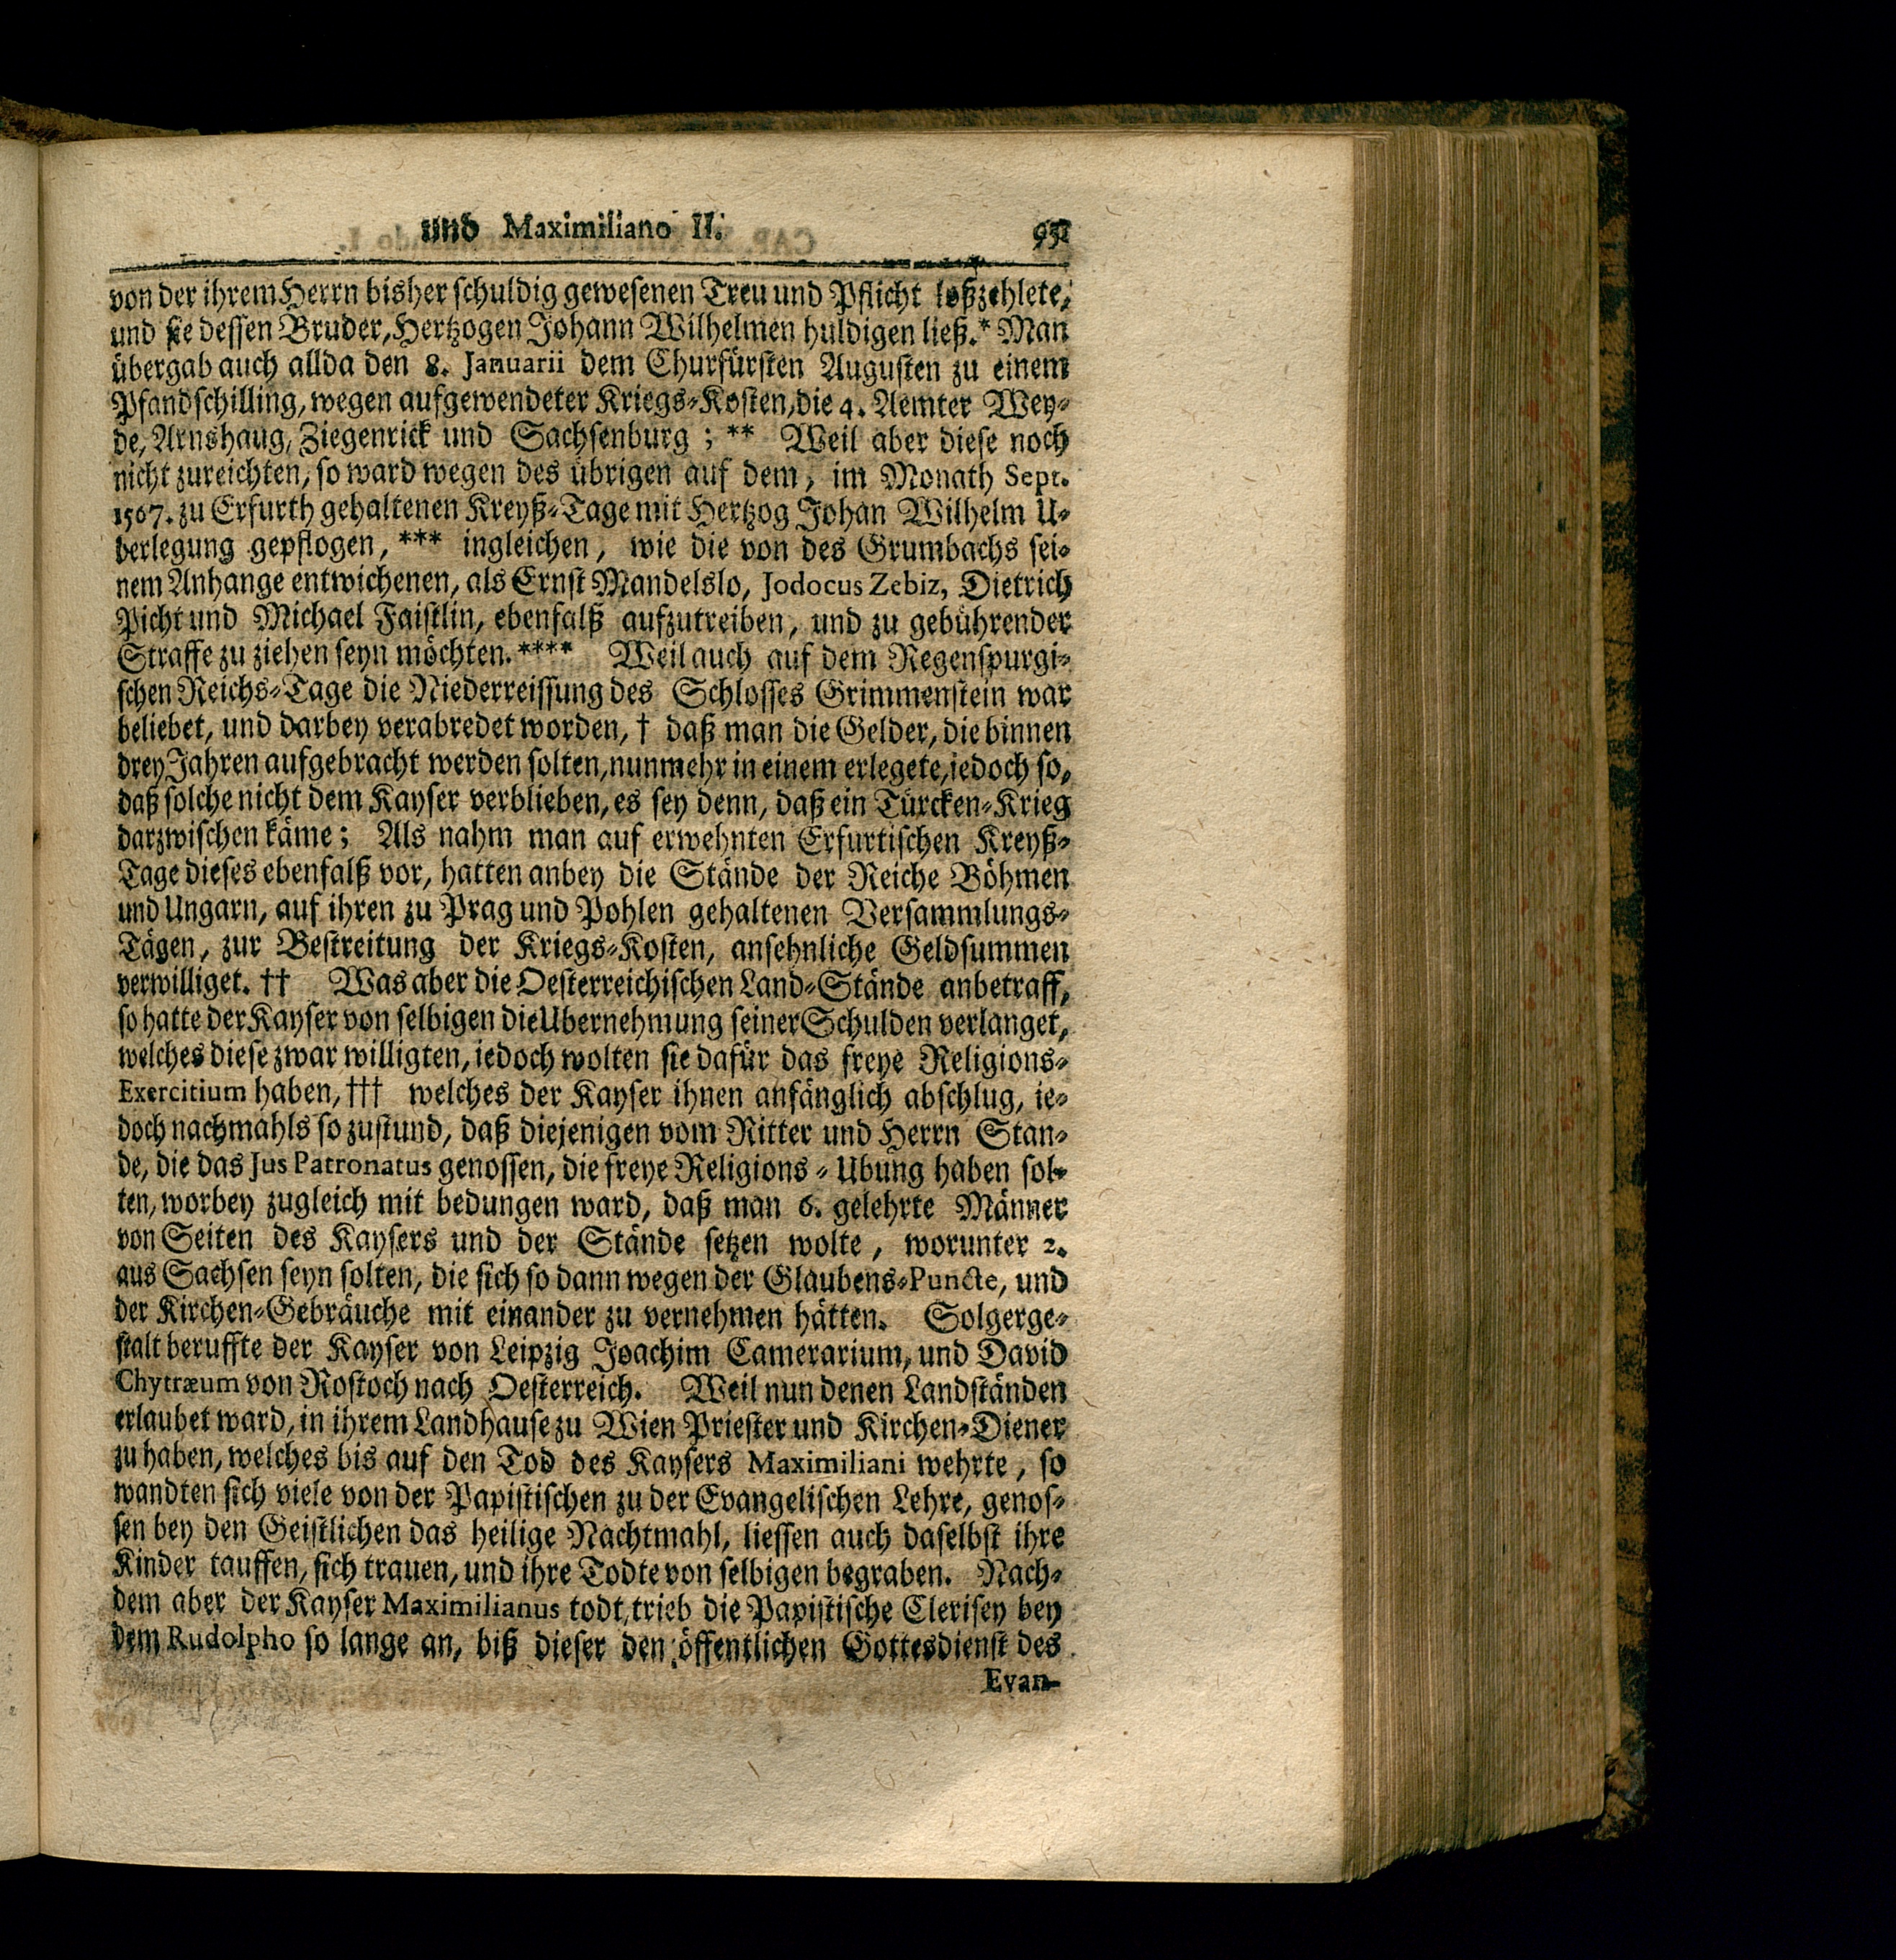 und Maximiliano II. 951
von der ihrem Herrn bisher schuldig gewesenen Treu und Pflicht loßzehlete,
und sie dessen Bruder, Hertzogen Johann Wilhelmen huldigen ließ.* Man
übergab auch allda den 8. Januarii dem Churfürsten Augusten zu einem
Pfandschilling, wegen aufgewendeter Kriegs-Kosten, die 4. Aemter Wey-
de, Arnshaug, Ziegenrick und Sachsenburg ; ** Weil aber diese noch
nicht zureichten, so ward wegen des übrigen auf dem, im Monath Sept.
1567. zu Erfurth gehaltenen Kreyß-Tage mit Hertzog Johan Wilhelm U-
berlegung gepflogen, *** ingleichen, wie die von des Grumbachs sei-
nem Anhange entwichenen, als Ernst Mandelslo, Jodocus Zebiz, Dietrich
Picht und Michael Faistlin, ebenfalß aufzutreiben, und zu gebührender
Straffe zu ziehen seyn möchten.**** Weil auch auf dem Regenspurgi-
schen Reichs-Tage die Niederreissung des Schlosses Grimmenstein war
beliebet, und darbey verabredet worden, † daß man die Gelder, die binnen
drey Jahren aufgebracht werden solten, nunmehr in einem erlegete, iedoch so,
daß solche nicht dem Kayser verblieben, es sey denn, daß ein Türcken-Krieg
darzwischen käme; Als nahm man auf erwehnten Erfurtischen Kreyß-
Tage dieses ebenfalß vor, hatten anbey die Stände der Reiche Böhmen
und Ungarn, auf ihren zu Prag und Pohlen gehaltenen Versammlungs-
Tägen, zur Bestreitung der Kriegs-Kosten, ansehnliche Geldsummen
verwilliget. †† Was aber die Oesterreichischen Land-Stände anbetraff,
so hatte der Kayser von selbigen die Ubernehmung seiner Schulden verlanget,
welches diese zwar willigten, iedoch wolten sie dafür das freye Religions-
Exercitium haben, ††† welches der Kayser ihnen anfänglich abschlug, ie-
doch nachmahls so zustund, daß diejenigen vom Ritter und Herrn Stan-
de, die das Jus Patronatus genossen, die freye Religions-Ubung haben sol-
ten, worbey zugleich mit bedungen ward, daß man 6. gelehrte Männer
von Seiten des Kaysers und der Stände setzen wolte, worunter 2.
aus Sachsen seyn solten, die sich so dann wegen der Glaubens-Puncte, und
der Kirchen-Gebräuche mit einander zu vernehmen hätten. Solgerge-
stalt beruffte der Kayser von Leipzig Joachim Camerarium, und David
Chytræum von Rostoch nach Oesterreich. Weil nun denen Landständen
erlaubet ward, in ihrem Landhause zu Wien Priester und Kirchen-Diener
zu haben, welches bis auf den Tod des Kaysers Maximiliani wehrte, so
wandten sich viele von der Papistischen zu der Evangelischen Lehre, genos-
sen bey den Geistlichen das heilige Nachtmahl, liessen auch daselbst ihre
Kinder tauffen, sich trauen, und ihre Todte von selbigen begraben. Nach-
dem aber der Kayser Maximilianus todt, trieb die Papistische Clerisey bey
dem Rudolpho so lange an, biß dieser den öffentlichen Gottesdienst des
Evan-